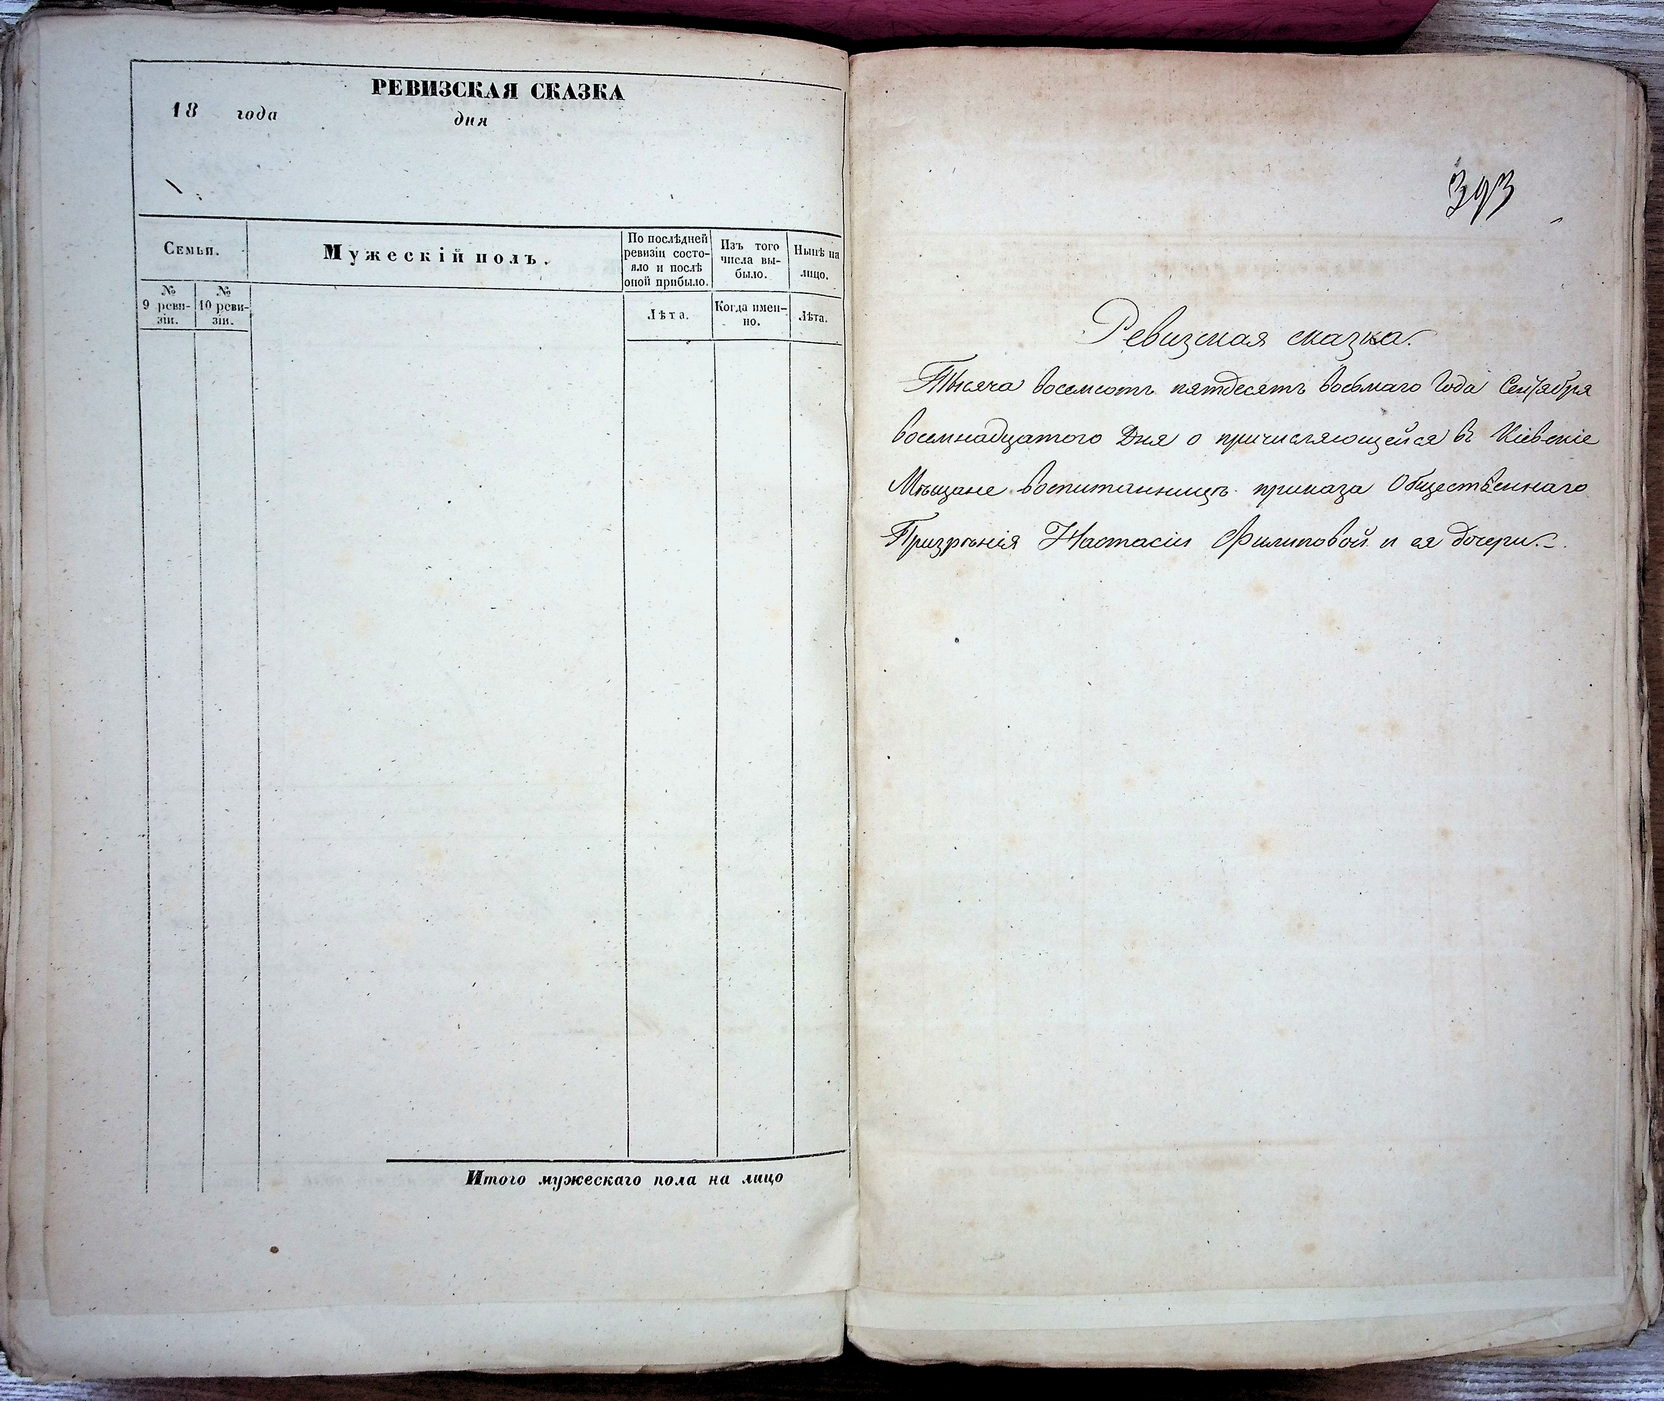 РЕВИЗСКАЯ СКАЗКА
18 года дня
Семьи.
№ 9 реви-зіи.
№ 10 реви-зіи.
Мужескій полъ.
По послѣдней
ревизіи состо-
яло и послѣ
оной прибыло.
Лѣта.
Изъ того
числа вы-
было.
Когда имен-
но.
Нынѣ на
лицо.
Лѣта.
Итого мужескаго пола на лицо
393
Ревизская сказка.
Тысяча восемсотъ пятдесятъ восьмаго Года Сентября
восемнадцатого Дня о причисляющейся въ Кіевскіе
Мѣщане воспитанницѣ приказа Общественнаго
Призрѣнія Настасіи Филиповой и ея дочери.